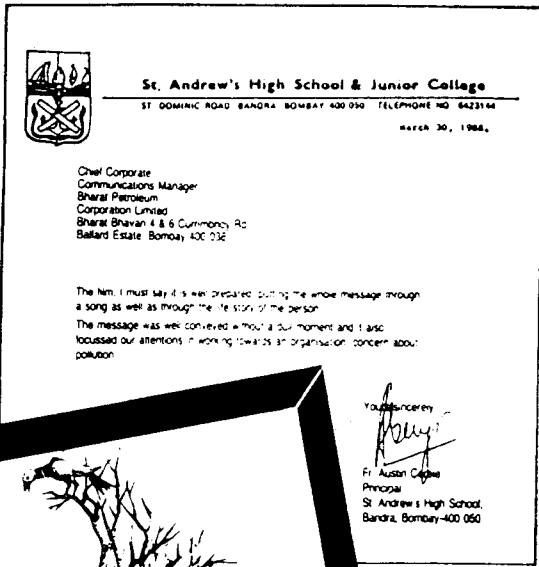 St. Andrew's High School & Junior College
ST DOMINIC ROAD BANDRA BOMBAY 400 050 TELEPHONE NO 6423144
March 30, 1988.
Chief Corporate
Communications Manager
Bharat Petroleum
Corporation Limited
Bharat Bhavan 4 & 6 Currimbhoy Rd
Ballard Estate Bombay 400 038
The film, I must say it is well prepared putting the whole message through
a song as well as through the life story of the person
The message was well conveyed without a dull moment and it also
focussed our attentions in working towards an organisation concern about
pollution
Yours sincerely
Fr. Austin
Principal
St Andrew's High School,
Bandra, Bombay-400 050